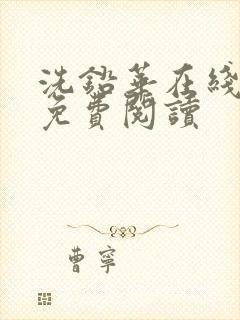 洗鉛華在綫
免費閱讀
曹寧